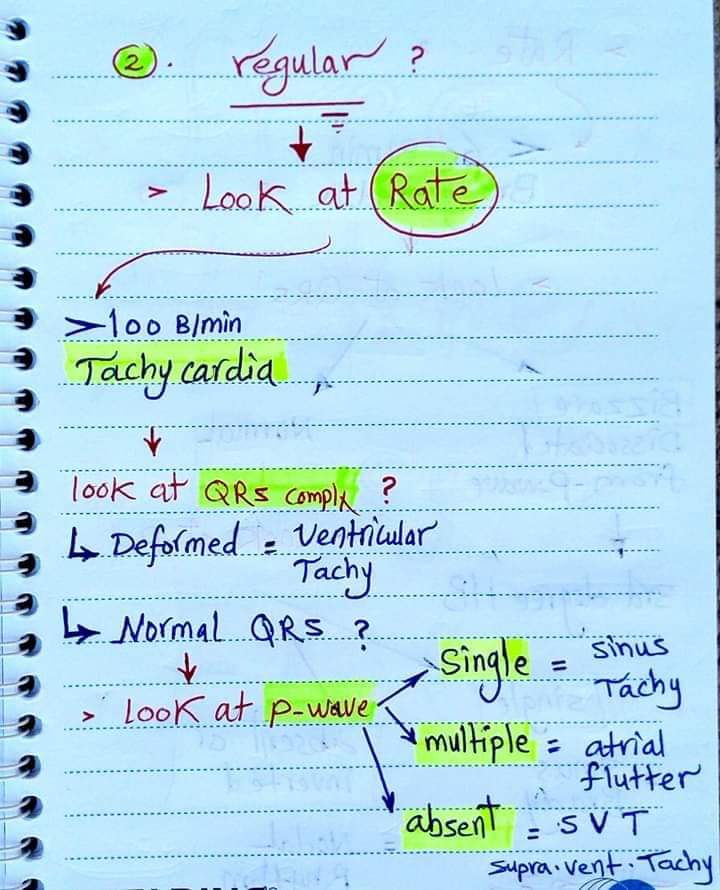 2. regular ?
> Look at Rate
>100 B/min
Tachy cardia
look at QRS Complx ?
↳ Deformed = Ventricular
Tachy
↳ Normal QRS ?
> Look at P-wave
Single = sinus
Tachy
multiple = atrial
flutter
absent = SVT
supra.vent.Tachy